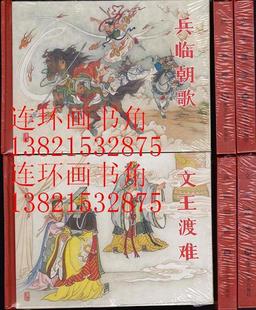 兵临朝歌
连环画书角
13821532875
连环画书角
13821532875
文王渡难